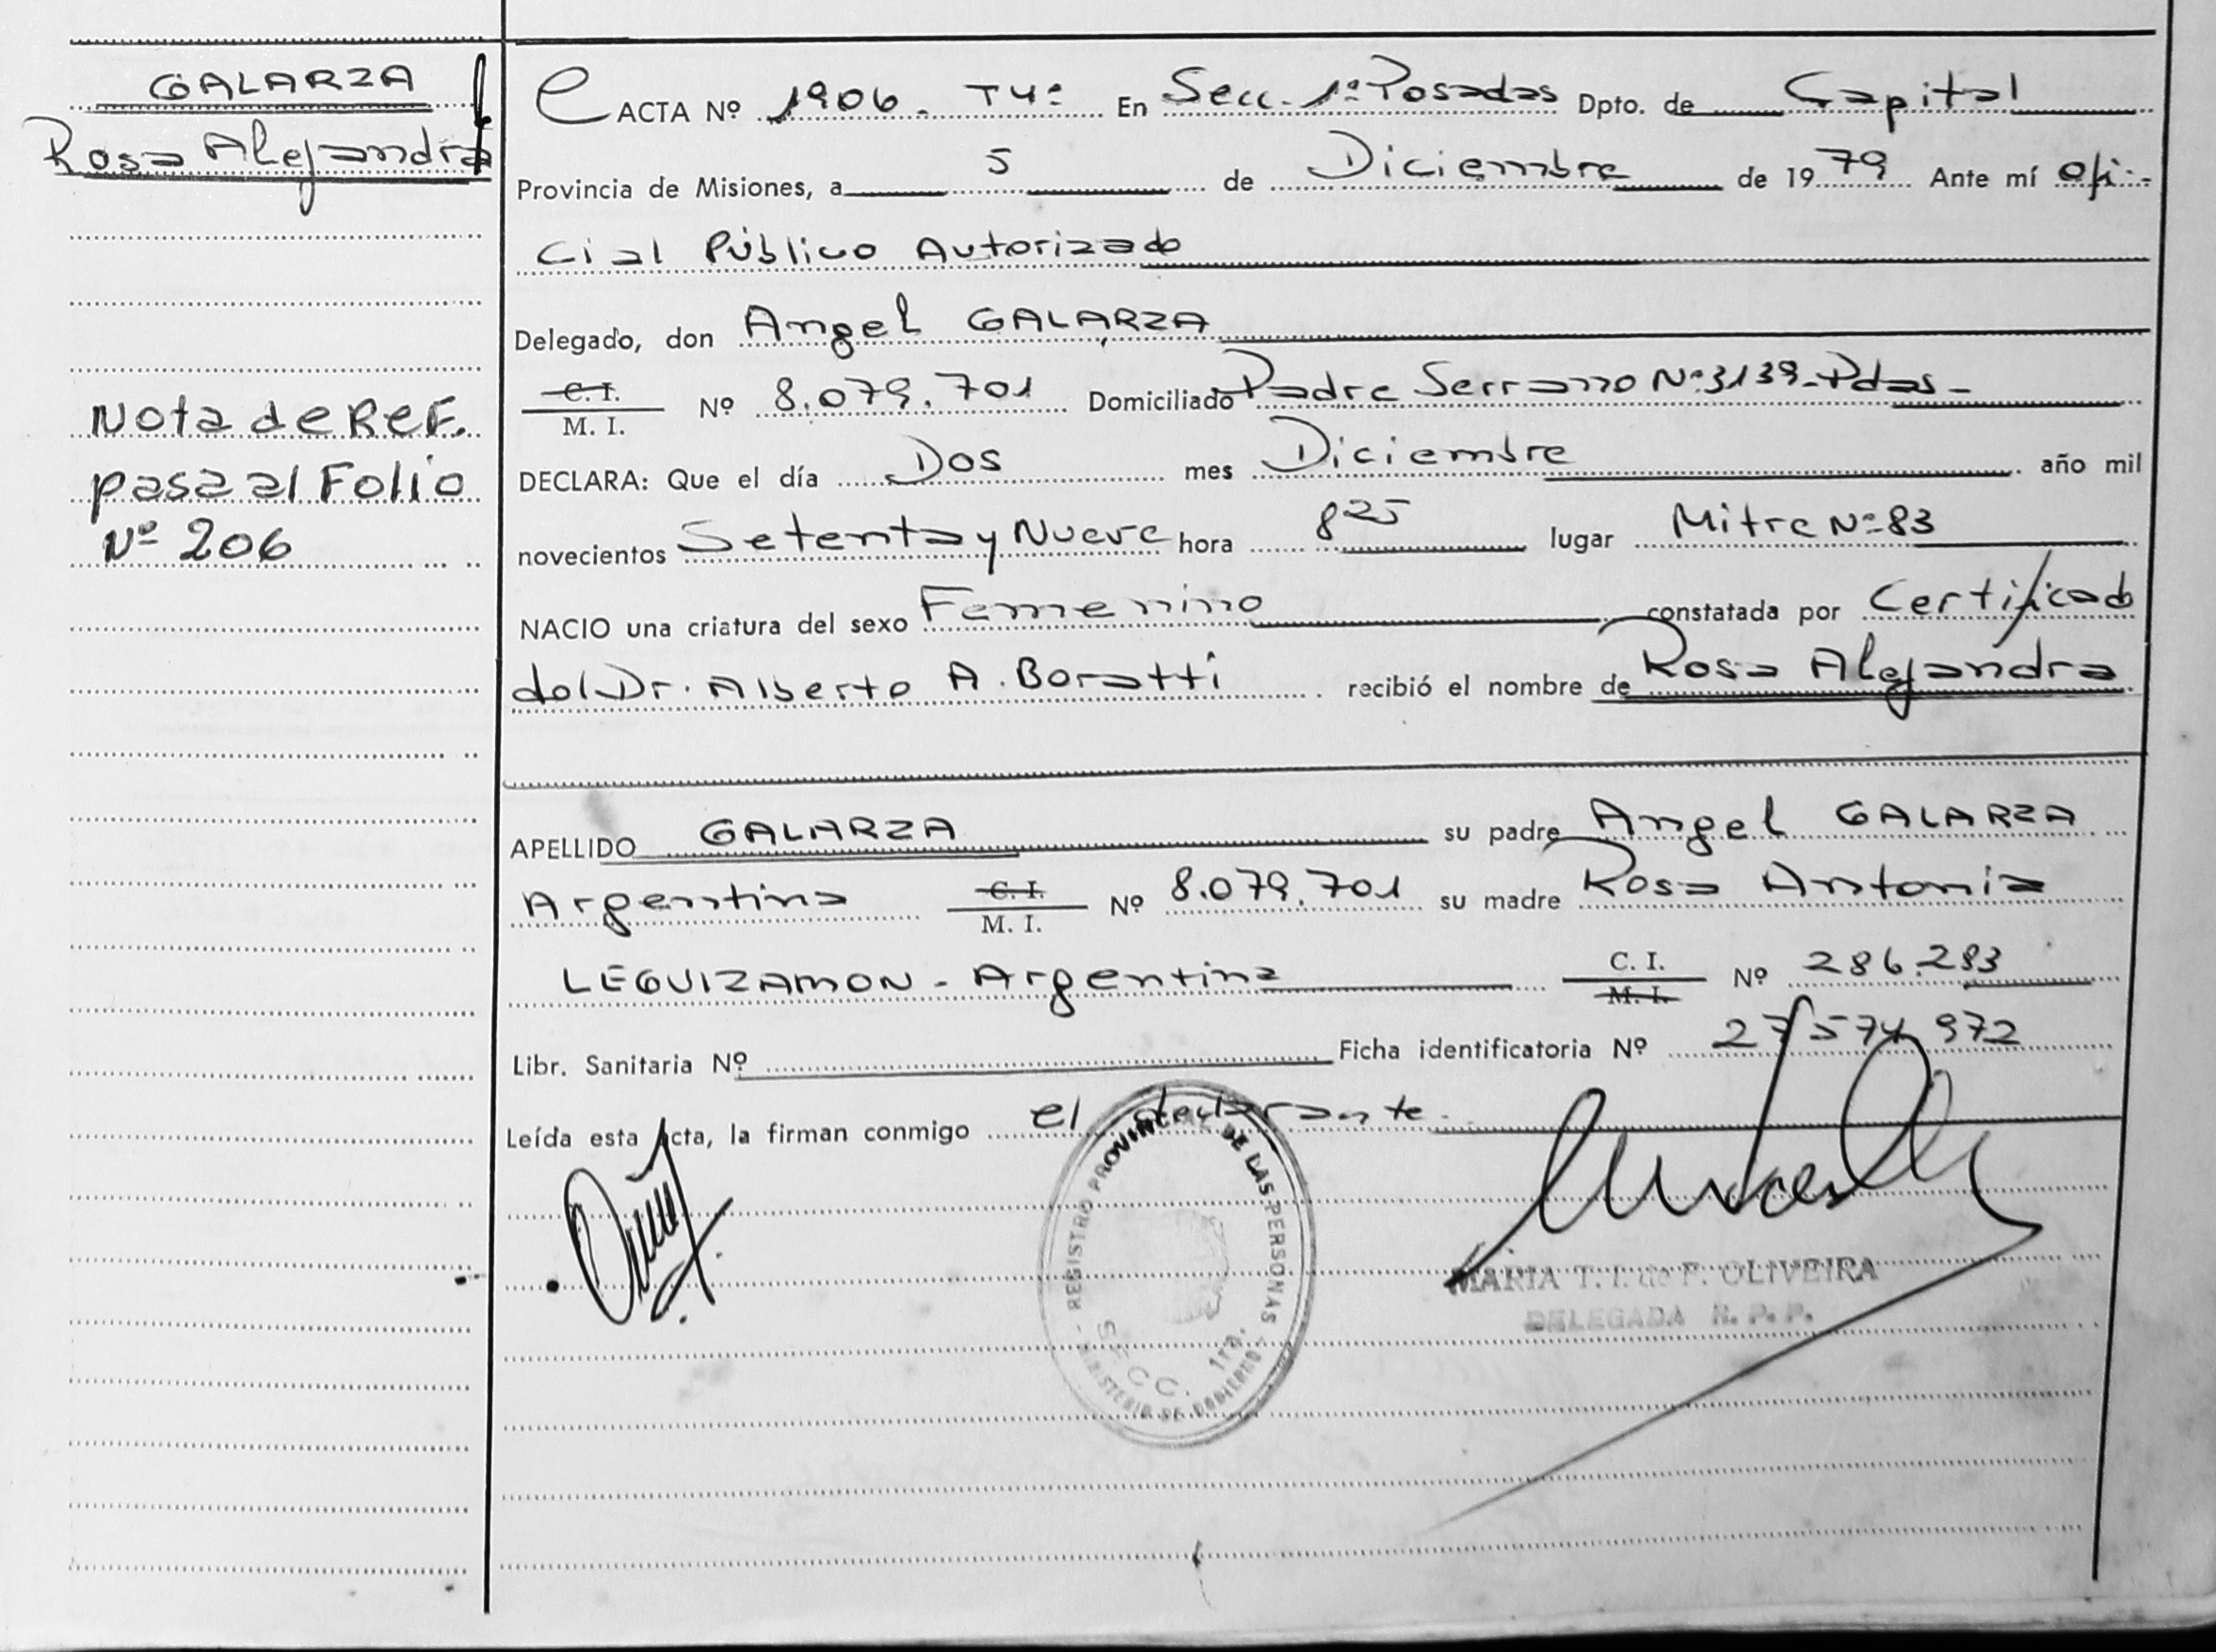 GALARZA
Rosa Alejandra
Nota de ReF.
pasa al Folio
Nº 206
ACTA Nº 1906. T4º En Secc. 1ª Posadas Dpto. de Capital
Provincia de Misiones, a 5 de Diciembre de 1979 Ante mí Ofi-
cial Público Autorizado
Delegado, don Angel GALARZA
C. I.
M. I. Nº 8.079.701 Domiciliado Padre Serrano Nº 3139-Pdas-
DECLARA: Que el día Dos mes Diciembre año mil
novecientos Setenta y Nueve hora 8 25 lugar Mitre Nº 83
NACIO una criatura del sexo Femenino constatada por Certificado
del Dr. Alberto A. Boratti recibió el nombre de Rosa Alejandra
APELLIDO GALARZA su padre Angel GALARZA
Argentina C. I.
M. I. Nº 8.079.701 su madre Rosa Antonia
LEGUIZAMON - Argentina C. I.
M. I. Nº 286.283
Libr. Sanitaria Nº Ficha identificatoria Nº 27 574 972
Leída esta acta, la firman conmigo el declarante.
REGISTRO PROVINCIAL DE LAS PERSONAS
SECC. 1ra.
MINISTERIO DE GOBIERNO
MARIA T. I. de F. OLIVEIRA
DELEGADA R. P. P.